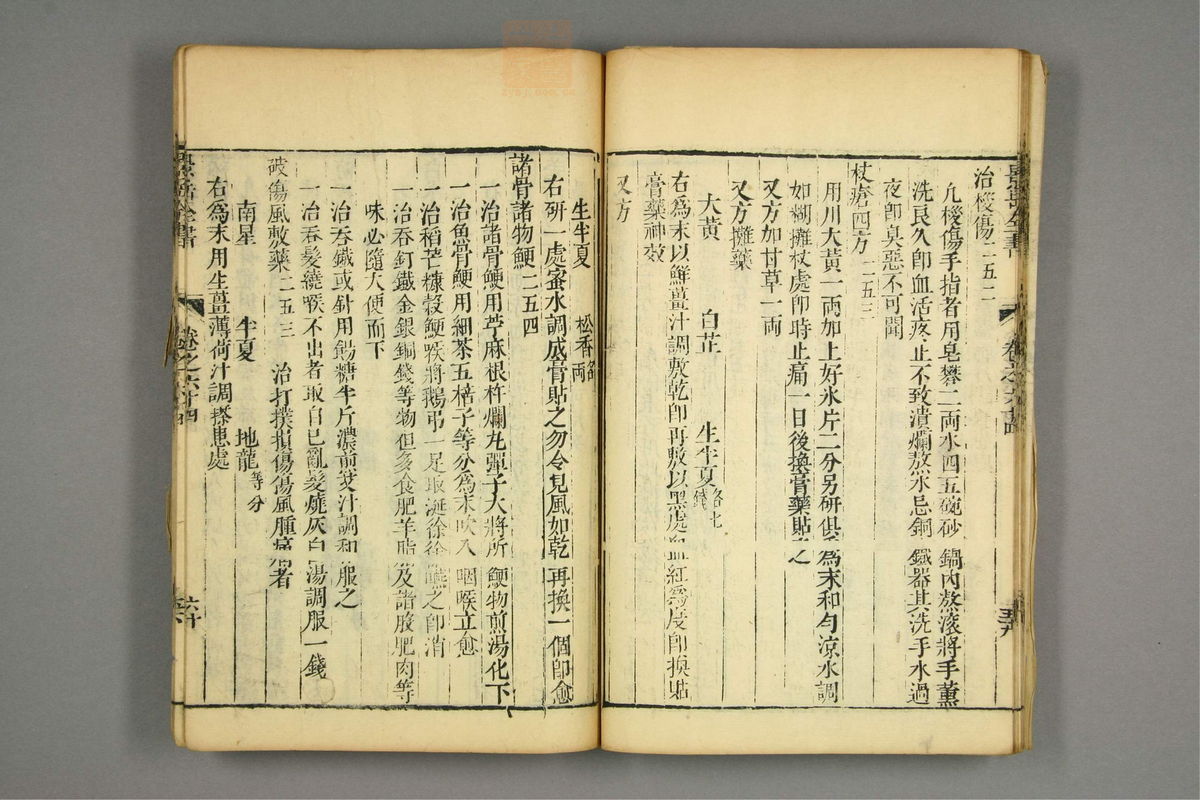 治椶傷二五二
凡椶傷手指者用皂礬二兩水四五碗砂鍋內熬滾將手薰
洗良久卽血活疼止不致潰爛熬水忌銅鐵器其洗手水過
夜卽臭惡不可聞
杖瘡四方二五三
用川大黃一兩加上好氷片二分另研俱為末和勻凉水調
如糊攤杖處卽時止痛一日後換膏藥貼之
又方加甘草一兩
又方攤藥
大黃 白芷 生半夏各七錢
右為末以鮮薑汁調敷乾卽再敷以黑處血紅為度卽換貼
膏藥神效
又方
生半夏 松香各兩
右研一處蜜水調成膏貼之勿令見風如乾再換一個卽愈
諸骨諸物鯁二五四
一治諸骨鯁用苧麻根杵爛丸彈子大將所鯁物煎湯化下
一治魚骨鯁用細茶五棓子等分為末吹入咽喉立愈
一治稻芒糠穀鯁喉將鵝弔一足取涎徐徐嚥之卽消
一治吞釘鐵金銀銅錢等物但多食肥羊脂及諸般肥肉等
味必隨大便而下
一治吞鐵或針用餳糖半斤濃煎艾汁調和服之
一治吞髮繞喉不出者取自己亂髮燒灰白湯調服一錢
破傷風敷藥二五三 治打撲損傷傷風腫痛者
南星 半夏 地龍等分
右為末用生薑薄荷汁調搽患處
景岳全書
卷之六十四